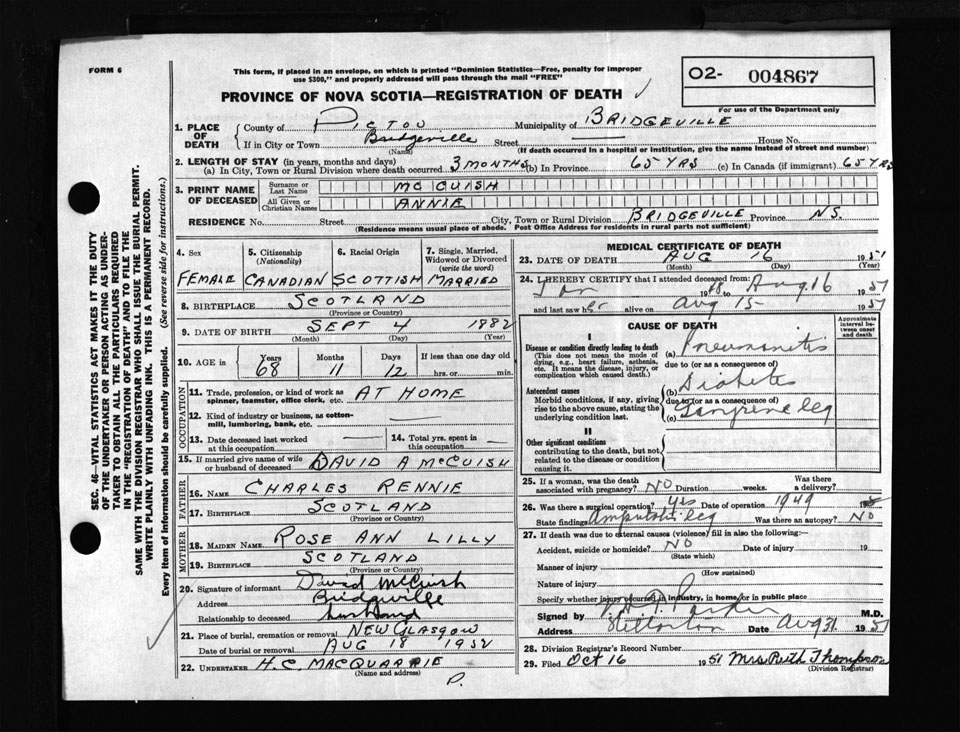 FORM 6
This form, if placed in an envelope, on which is printed "Dominion Statistics—Free, penalty for improper
use $300," and properly addressed will pass through the mail "FREE"
O2- 004867
For use of the Department only
PROVINCE OF NOVA SCOTIA—REGISTRATION OF DEATH
1. PLACE OF DEATH
County of PICTOU Municipality of BRIDGEVILLE
If in City or Town Bridgeville Street House No.
(Name) (If death occurred in a hospital or institution, give the name instead of street and number)
2. LENGTH OF STAY (in years, months and days)
(a) In City, Town or Rural Division where death occurred 3 MONTHS (b) In Province 65 YRS (c) In Canada (if immigrant) 65 YRS
3. PRINT NAME OF DECEASED
Surname or Last Name MC CUISH
All Given or Christian Names ANNIE
RESIDENCE No. Street City, Town or Rural Division BRIDGEVILLE Province N.S.
(Residence means usual place of abode. Post Office Address for residents in rural parts not sufficient)
4. Sex 5. Citizenship (Nationality) 6. Racial Origin 7. Single, Married, Widowed or Divorced (write the word)
FEMALE CANADIAN SCOTTISH MARRIED
8. BIRTHPLACE SCOTLAND
(Province or Country)
9. DATE OF BIRTH SEPT 4 1882
(Month) (Day) (Year)
10. AGE in Years Months Days If less than one day old
68 11 12 hrs. or min.
OCCUPATION
11. Trade, profession or kind of work as
spinner, teamster, office clerk, etc. AT HOME
12. Kind of industry or business, as cotton-
mill, lumbering, bank, etc.
13. Date deceased last worked at this occupation
14. Total yrs. spent in this occupation
15. If married give name of wife
or husband of deceased DAVID A MCCUISH
FATHER
16. NAME CHARLES RENNIE
17. BIRTHPLACE SCOTLAND
(Province or Country)
MOTHER
18. MAIDEN NAME ROSE ANN LILLY
19. BIRTHPLACE SCOTLAND
(Province or Country)
20. Signature of informant David McCuish
Address Bridgeville
Relationship to deceased husband
21. Place of burial, cremation or removal NEW GLASGOW
Date of burial or removal AUG 18 1952
22. UNDERTAKER H.C. MACQUARRIE
(Name and address)
P.
MEDICAL CERTIFICATE OF DEATH
23. DATE OF DEATH AUG 16 1951
(Month) (Day) (Year)
24. I HEREBY CERTIFY that I attended deceased from:
Jan 1948 to Aug 16 1951
and last saw her alive on Aug 15 1951
CAUSE OF DEATH
Approximate interval between onset and death
I
Disease or condition directly leading to death
(This does not mean the mode of
dying, e.g., heart failure, asthenia,
etc. It means the disease, injury, or
complication which caused death.)
(a) Pneumonitis
due to (or as a consequence of)
(b) Diabetes
Antecedent causes
Morbid conditions, if any, giving
rise to the above cause, stating the
underlying condition last.
due to (or as a consequence of)
(c) Gangrene leg
II
Other significant conditions
contributing to the death, but not
related to the disease or condition
causing it.
25. If a woman, was the death
associated with pregnancy? NO Duration weeks. Was there a delivery?
26. Was there a surgical operation? yes Date of operation 1949 19
State findings Amputated leg Was there an autopsy? No
27. If death was due to external causes (violence) fill in also the following:—
Accident, suicide or homicide? NO Date of injury 19
(State which)
Manner of injury
(How sustained)
Nature of injury
Specify whether injury occurred in industry, in home or in public place
Signed by Parker M.D.
Address Stellarton Date Aug 31 1951
28. Division Registrar's Record Number
29. Filed Oct 16 1951 Mrs. Ruth Thompson
(Division Registrar)
SEC. 46—VITAL STATISTICS ACT MAKES IT THE DUTY
OF THE UNDERTAKER OR PERSON ACTING AS UNDER-
TAKER TO OBTAIN ALL THE PARTICULARS REQUIRED
IN THE "REGISTRATION OF DEATH" AND TO FILE THE
SAME WITH THE DIVISION REGISTRAR WHO SHALL ISSUE THE BURIAL PERMIT.
WRITE PLAINLY WITH UNFADING INK. THIS IS A PERMANENT RECORD.
Every item of information should be carefully supplied. (See reverse side for instructions.)